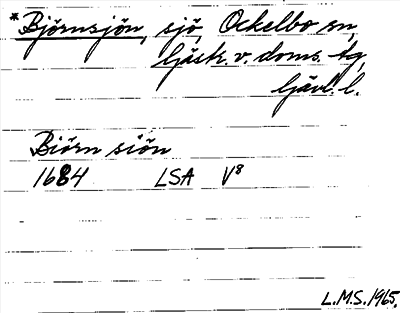 * Björnsjön, sjö, Ockelbo sn,
Gästr. v. doms. tg,
Gävl. l.
Biörn siön
1684 LSA V8
L.M.S. 1965.